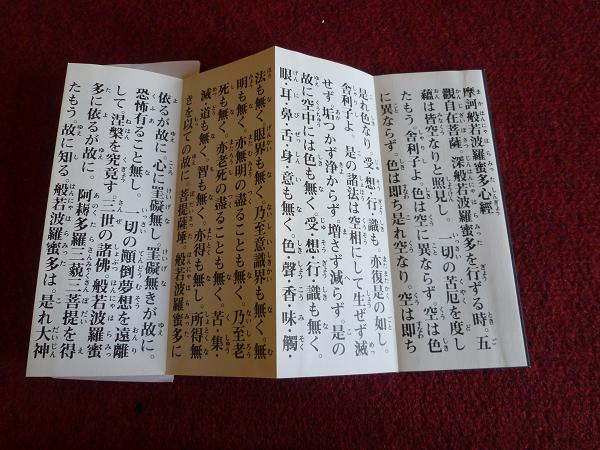 摩訶般若波羅蜜多心經
觀自在菩薩 深般若波羅蜜多を行ずる時。五
蘊は皆空なりと照見し。一切の苦厄を度し
たもう。舎利子よ。色は空に異ならず。空は色
に異ならず。色は即ち是れ空なり。空は即ち
是れ色なり。受・想・行・識も。亦復是の如し。
舎利子よ。是の諸法は空相にして生ぜず滅
せず。垢つかず浄からず。増さず減らず。是の
故に空中には色も無く。受・想・行・識も無く。
眼・耳・鼻・舌・身・意も無く。色・聲・香・味・觸・
法も無く。眼界も無く。乃至意識界も無く。無
明も無く。亦無明の盡ることも無く。乃至老
死も無く。亦老死の盡ることも無く。苦・集・
滅・道も無く。智も無く。亦得も無し。所得無
きを以ての故に。菩提薩埵。般若波羅蜜多に
依るが故に。心に罣礙無し。罣礙無きが故に。
恐怖有ること無し。一切の顛倒夢想を遠離
して涅槃を究竟す。三世の諸佛。般若波羅蜜
多に依るが故に。阿耨多羅三藐三菩提を得
たもう。故に知る。般若波羅蜜多は。是れ大神